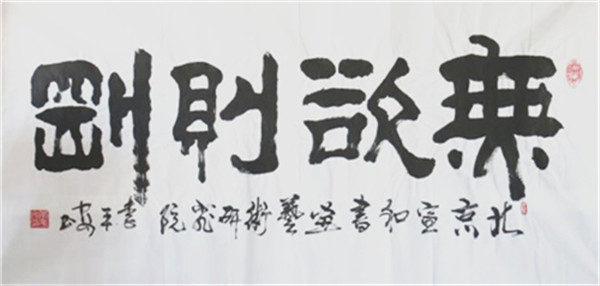 無欲則剛
北京宣和書画藝術研究院 李平安